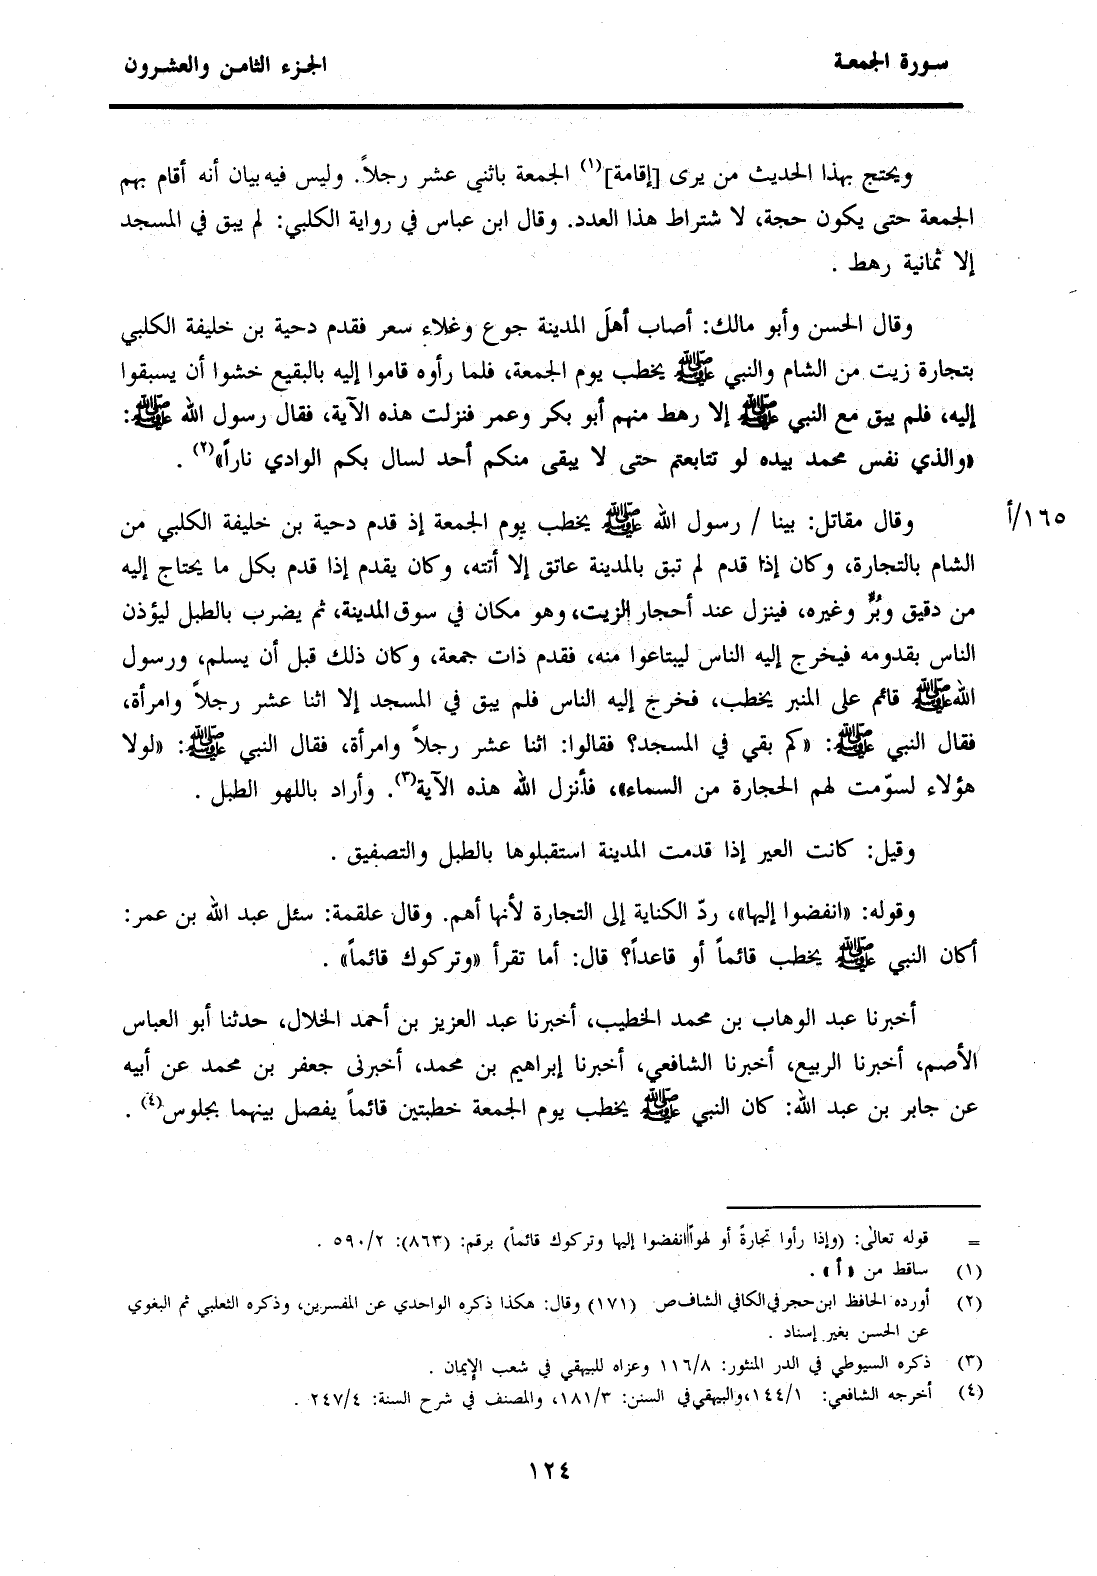 سورة الجمعة
الجزء الثامن والعشرون
ويحتج بهذا الحديث من يرى [إقامة](١) الجمعة باثني عشر رجلاً. وليس فيه بيان أنه أقام بهم
الجمعة حتى يكون حجة، لا شتراط هذا العدد. وقال ابن عباس في رواية الكلبي: لم يبق في المسجد
إلا ثمانية رهط .
وقال الحسن وأبو مالك: أصاب أهلَ المدينة جوع وغلاء سعر فقدم دحية بن خليفة الكلبي
بتجارة زيت من الشام والنبي ﷺ يخطب يوم الجمعة، فلما رأوه قاموا إليه بالبقيع خشوا أن يسبقوا
إليه، فلم يبق مع النبي ﷺ إلا رهط منهم أبو بكر وعمر فنزلت هذه الآية، فقال رسول الله ﷺ:
«والذي نفس محمد بيده لو تتابعتم حتى لا يبقى منكم أحد لسال بكم الوادي ناراً»(٢) .
وقال مقاتل: بينا / رسول الله ﷺ يخطب يوم الجمعة إذ قدم دحية بن خليفة الكلبي من
١٦٥/أ
الشام بالتجارة، وكان إذا قدم لم تبق بالمدينة عاتق إلا أتته، وكان يقدم إذا قدم بكل ما يحتاج إليه
من دقيق وبُرٍّ وغيره، فينزل عند أحجار الزيت، وهو مكان في سوق المدينة، ثم يضرب بالطبل ليؤذن
الناس بقدومه فيخرج إليه الناس ليبتاعوا منه، فقدم ذات جمعة، وكان ذلك قبل أن يسلم، ورسول
الله ﷺ قائم على المنبر يخطب، فخرج إليه الناس فلم يبق في المسجد إلا اثنا عشر رجلاً وامرأة،
فقال النبي ﷺ: «كم بقي في المسجد؟ فقالوا: اثنا عشر رجلاً وامرأة، فقال النبي ﷺ: «لولا
هؤلاء لسوّمت لهم الحجارة من السماء»، فأنزل الله هذه الآية(٣). وأراد باللهو الطبل .
وقيل: كانت العير إذا قدمت المدينة استقبلوها بالطبل والتصفيق .
وقوله: «انفضوا إليها»، ردّ الكناية إلى التجارة لأنها أهم. وقال علقمة: سئل عبد الله بن عمر:
أكان النبي ﷺ يخطب قائماً أو قاعداً؟ قال: أما تقرأ «وتركوك قائماً» .
أخبرنا عبد الوهاب بن محمد الخطيب، أخبرنا عبد العزيز بن أحمد الخلال، حدثنا أبو العباس
الأصم، أخبرنا الربيع، أخبرنا الشافعي، أخبرنا إبراهيم بن محمد، أخبرنى جعفر بن محمد عن أبيه
عن جابر بن عبد الله: كان النبي ﷺ يخطب يوم الجمعة خطبتين قائماً يفصل بينهما بجلوس(٤) .
= قوله تعالى: (وإذا رأوا تجارةً أو لهواً انفضوا إليها وتركوك قائماً) برقم: (٨٦٣): ٥٩٠/٢ .
(١) ساقط من «أ» .
(٢) أورده الحافظ ابن حجر في الكافي الشاف ص (١٧١) وقال: هكذا ذكره الواحدي عن المفسرين، وذكره الثعلبي ثم البغوي
عن الحسن بغير إسناد .
(٣) ذكره السيوطي في الدر المنثور: ١١٦/٨ وعزاه للبيهقي في شعب الإيمان .
(٤) أخرجه الشافعي: ١٤٤/١، والبيهقي في السنن: ١٨١/٣، والمصنف في شرح السنة: ٢٤٧/٤ .
١٢٤